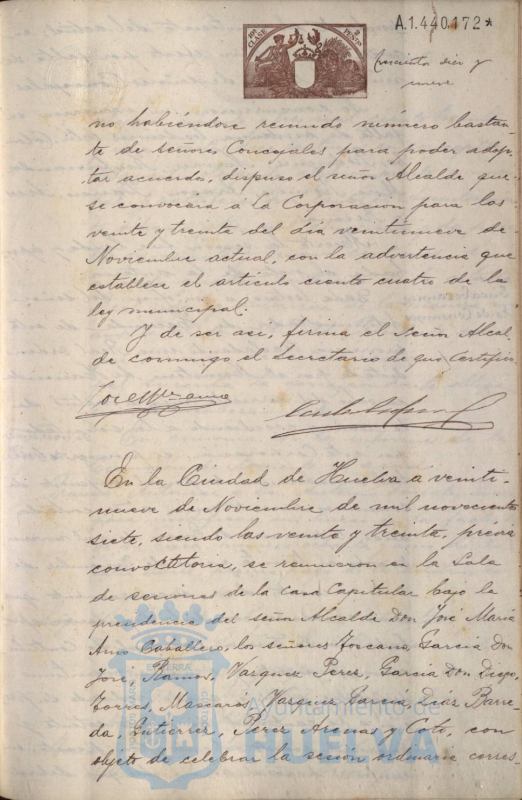 A.1.440.172*
10ª CLASE
2 PESETAS
diez y
nueve
no habiéndose reunido número bastan-
te de señores Concejales para poder adop-
tar acuerdo, dispuso el señor Alcalde que
se convocara á la Corporacion para las
veinte y treinta del dia veintinueve de
Noviembre actual, con la advertencia que
establece el articulo ciento cuatro de la
ley municipal.
Y de ser asi, firma el Señor Alcal
de conmigo el Secretario de que Certifico
En la Ciudad de Huelva á veinti-
nueve de Noviembre de mil novecientos
siete, siendo las veinte y treinta, prévia
convocatoria, se reunieron en la Sala
de sesiones de la casa Capitular bajo la
presidencia del señor Alcalde Don José Maria
Amo Caballero, los señores Toscano Garcia Don
José, Ramos, Vazquez Perez, Garcia Don Diego,
Torres, Mascarós, Vazquez Garcia, Diaz Barre-
da, Gutierrez, Perez Arenas y Coto, con
objeto de celebrar la sesión ordinaria corres-
Ayuntamiento de
HUELVA